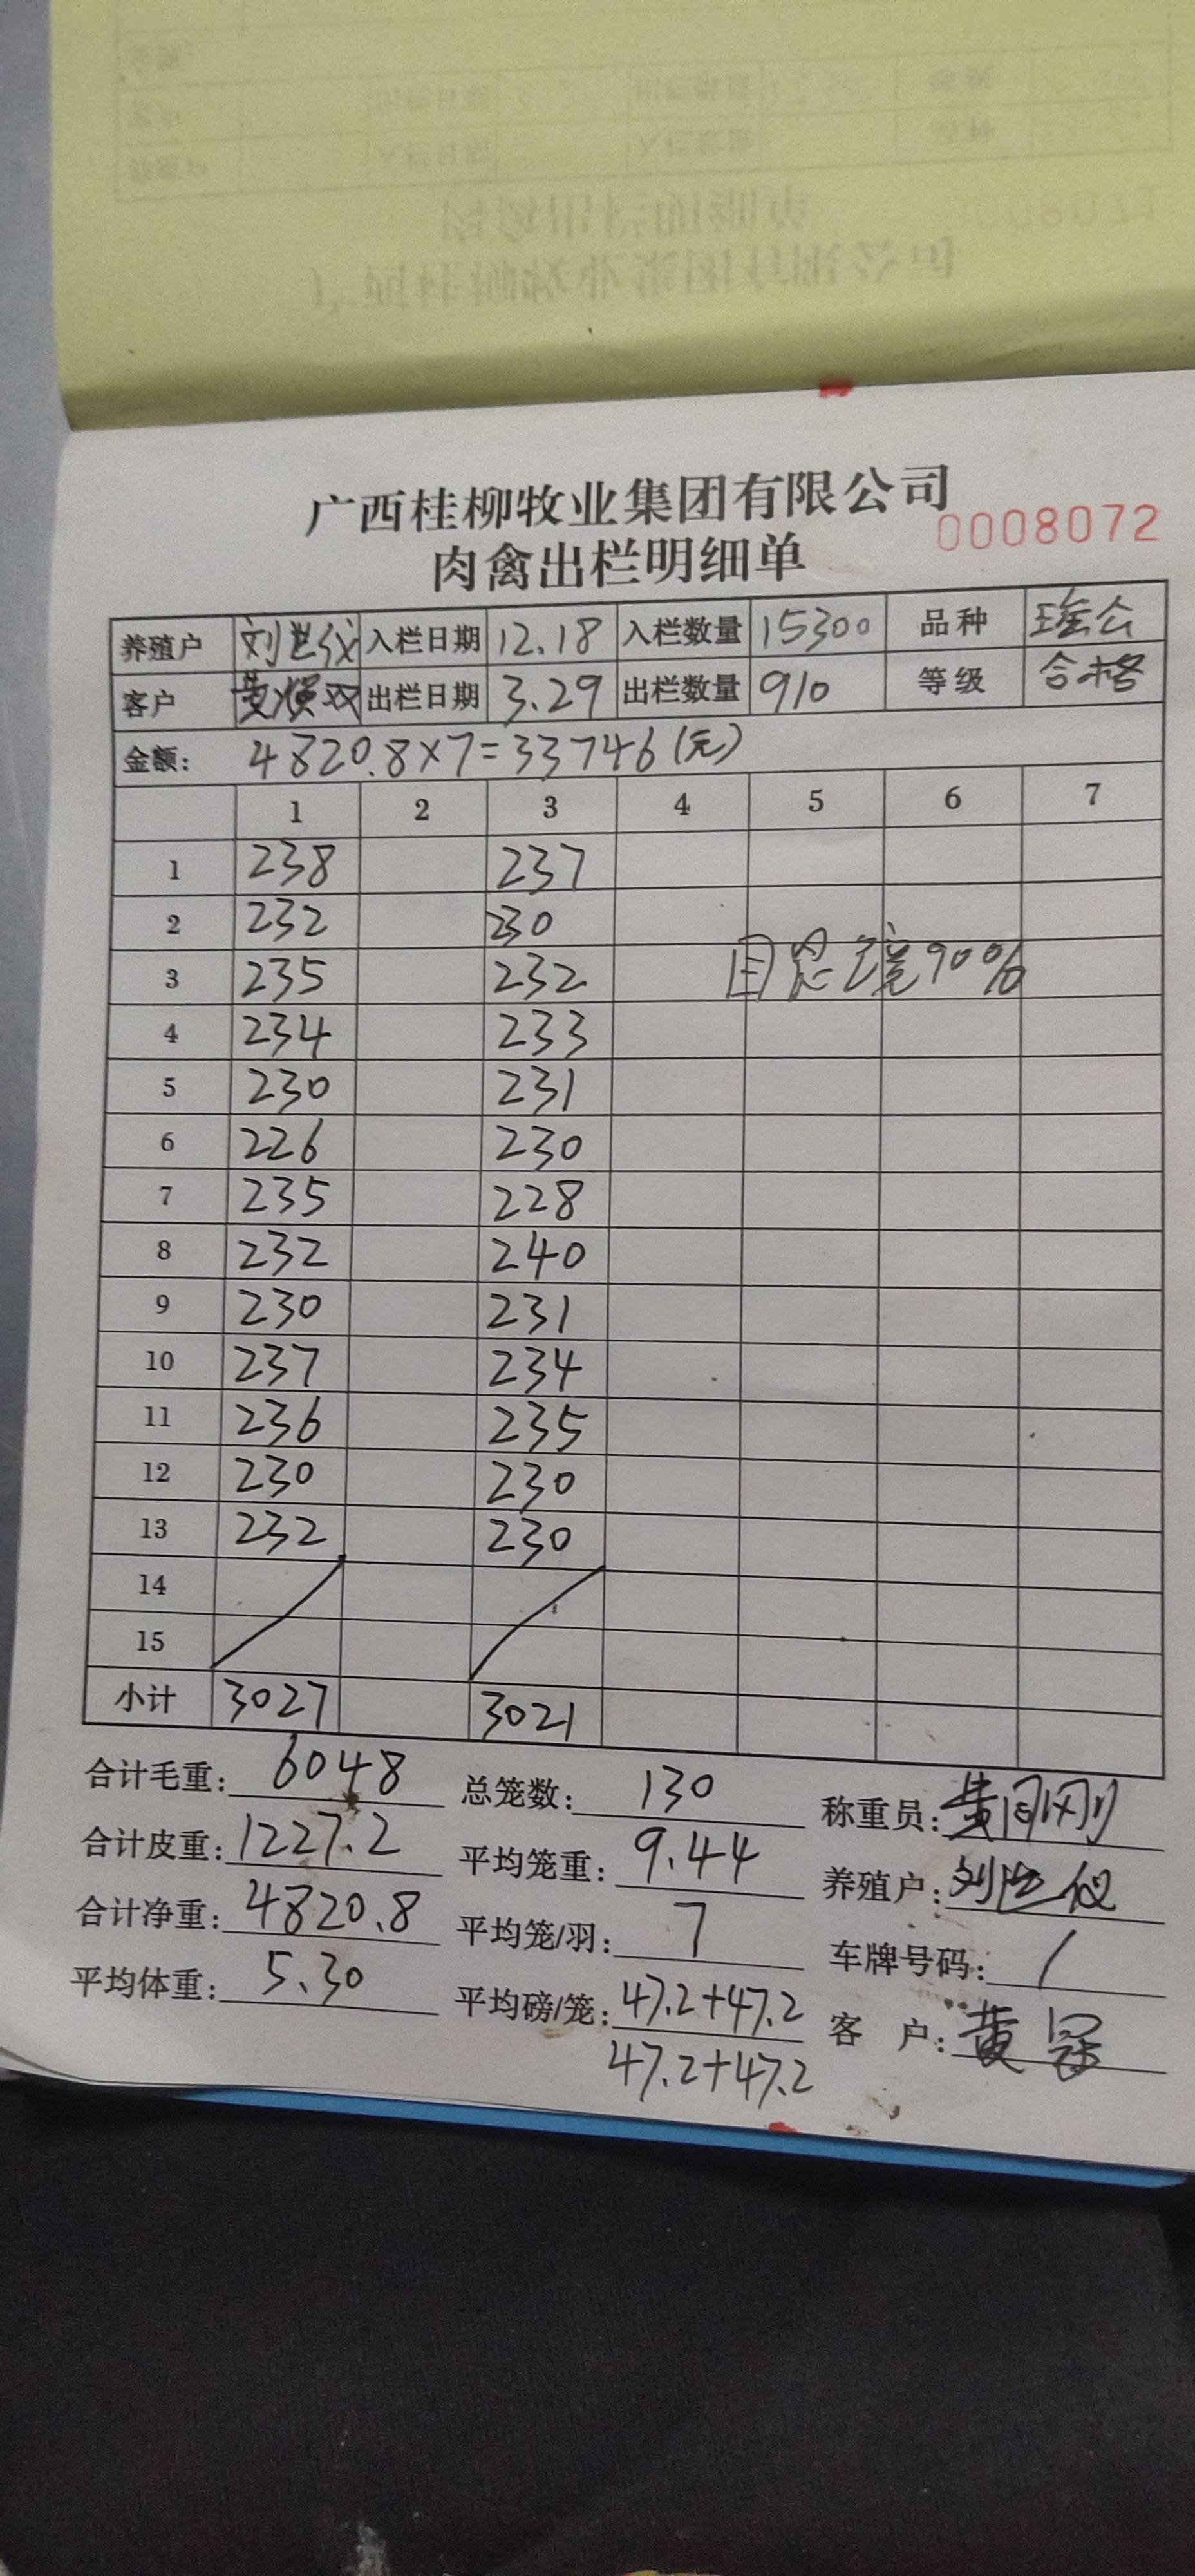 广西桂柳牧业集团有限公司
肉禽出栏明细单 0008072
养殖户 刘世仪 入栏日期 12.18 入栏数量 15300 品种 瑶公
客户 黄 出栏日期 3.29 出栏数量 910 等级 合格
金额: 4820.8×7=33746(元)
1 2 3 4 5 6 7
1 238 237
2 232 230
3 235 232 90%
4 234 233
5 230 231
6 226 230
7 235 228
8 232 240
9 230 231
10 237 234
11 236 235
12 230 230
13 232 230
14
15
小计 3027 3021
合计毛重: 6048 总笼数: 130 称重员: 黄刚刚
合计皮重: 1227.2 平均笼重: 9.44 养殖户: 刘世仪
合计净重: 4820.8 平均笼/羽: 7 车牌号码: /
平均体重: 5.30 平均磅/笼: 47.2+47.2 客户: 黄
47.2+47.2